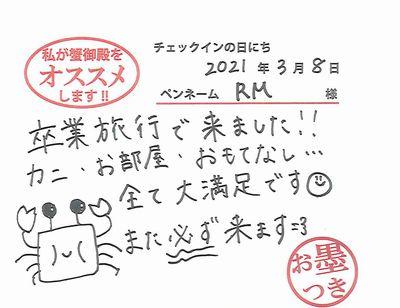 私が蟹御殿を
オススメ
します!!
チェックインの日にち
2021年3月8日
ペンネーム RM 様
卒業旅行で来ました!!
カニ・お部屋・おもてなし…
全て大満足です☺
また必ず来ます=3
お墨
つき